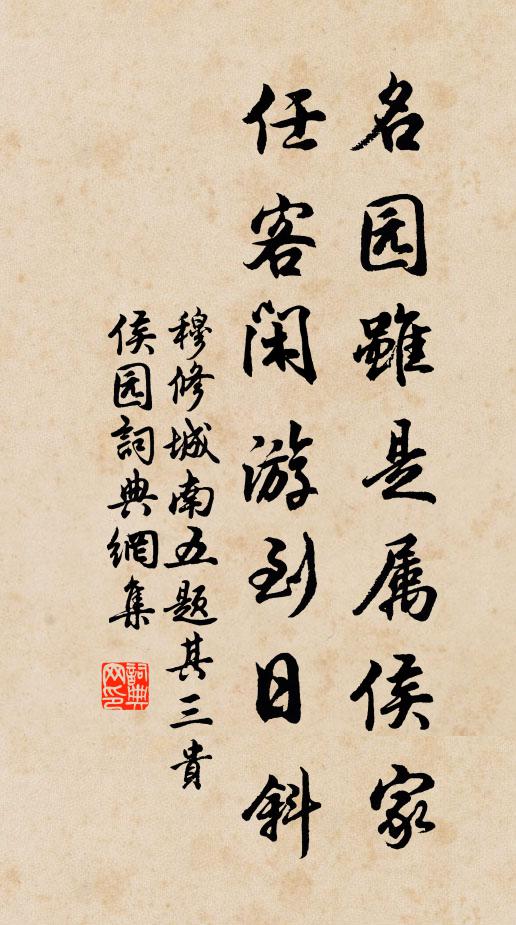 名园雖是属侯家
任客闲游到日斜
穆修城南五题其三貴
侯园詞典網集
詞典网印